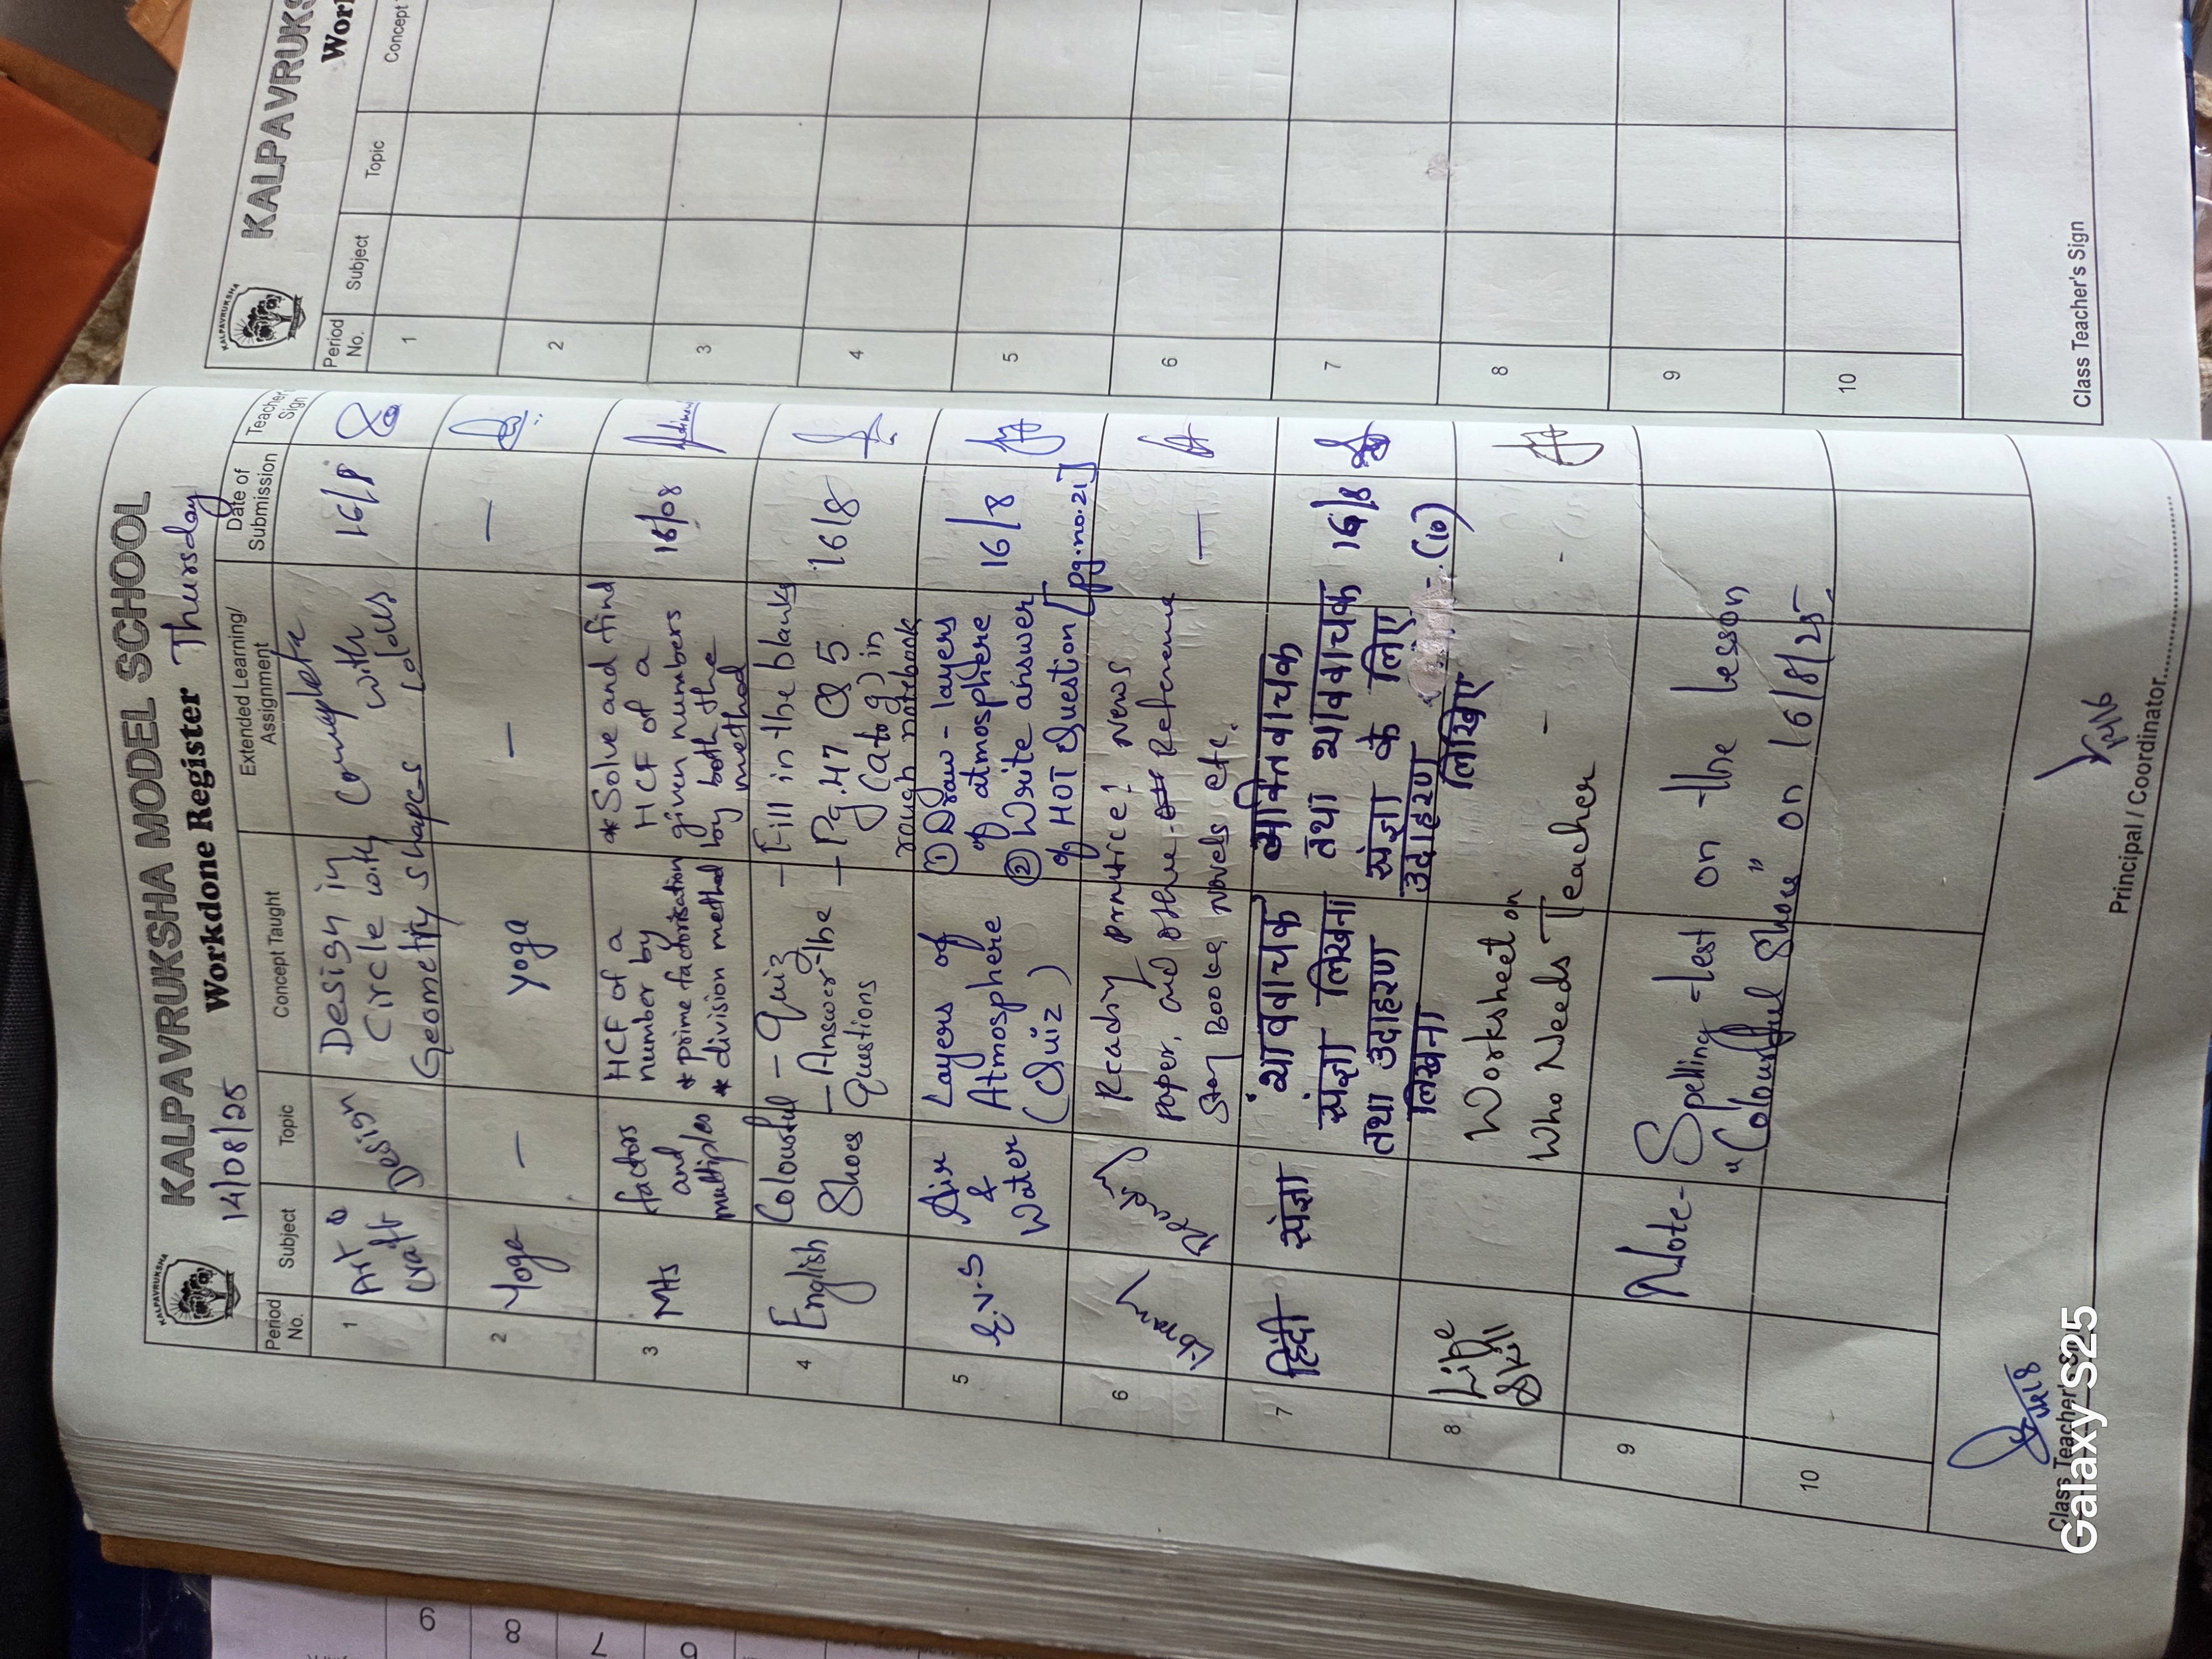 KALPAVRUKSHA
KALPAVRUKSHA MODEL SCHOOL
14/08/25 Workdone Register Thursday
Period No. Subject Topic Concept Taught Extended Learning/ Assignment Date of Submission Teacher Sign
1 Art & Craft Design Design in Circle with Geometry shapes Complete with colous 16/8
2 Yoga — Yoga — —
3 Mths factors and multiples HCF of a number by * prime factorisation * division method * Solve and find HCF of a given numbers by both the method 16/08
4 English Colourful Shoes – Quiz – Answer the Questions – Fill in the blanks – Pg. 47 Q5 (a to g) in rough notebook 16/8
5 E.V.S Air & Water Layers of Atmosphere (Quiz) ① Draw - layers of atmosphere ② Write answer of HOT Question [pg.no.21] 16/8
6 Reading prmctice: News
Paper, and other Reference
Story Books, Novels etc. —
7 हिंदी संज्ञा भाववाचक संज्ञा लिखना तथा उदाहरण लिखना व्यक्तिवाचक तथा भाववाचक संज्ञा के लिए उदाहरण लिखिए (10) 16/8
8 Life Skill Worksheet on Who Needs Teacher - -
9 Note- Spelling test on the lesson
"Colourful Shoes" on 16/8/25.
10
Class Teacher's
Principal / Coordinator
Galaxy S25
KALPAVRUKSHA
KALPAVRUKS
Wor
Period No. Subject Topic Concept
1
2
3
4
5
6
7
8
9
10
Class Teacher's Sign
9
8
7